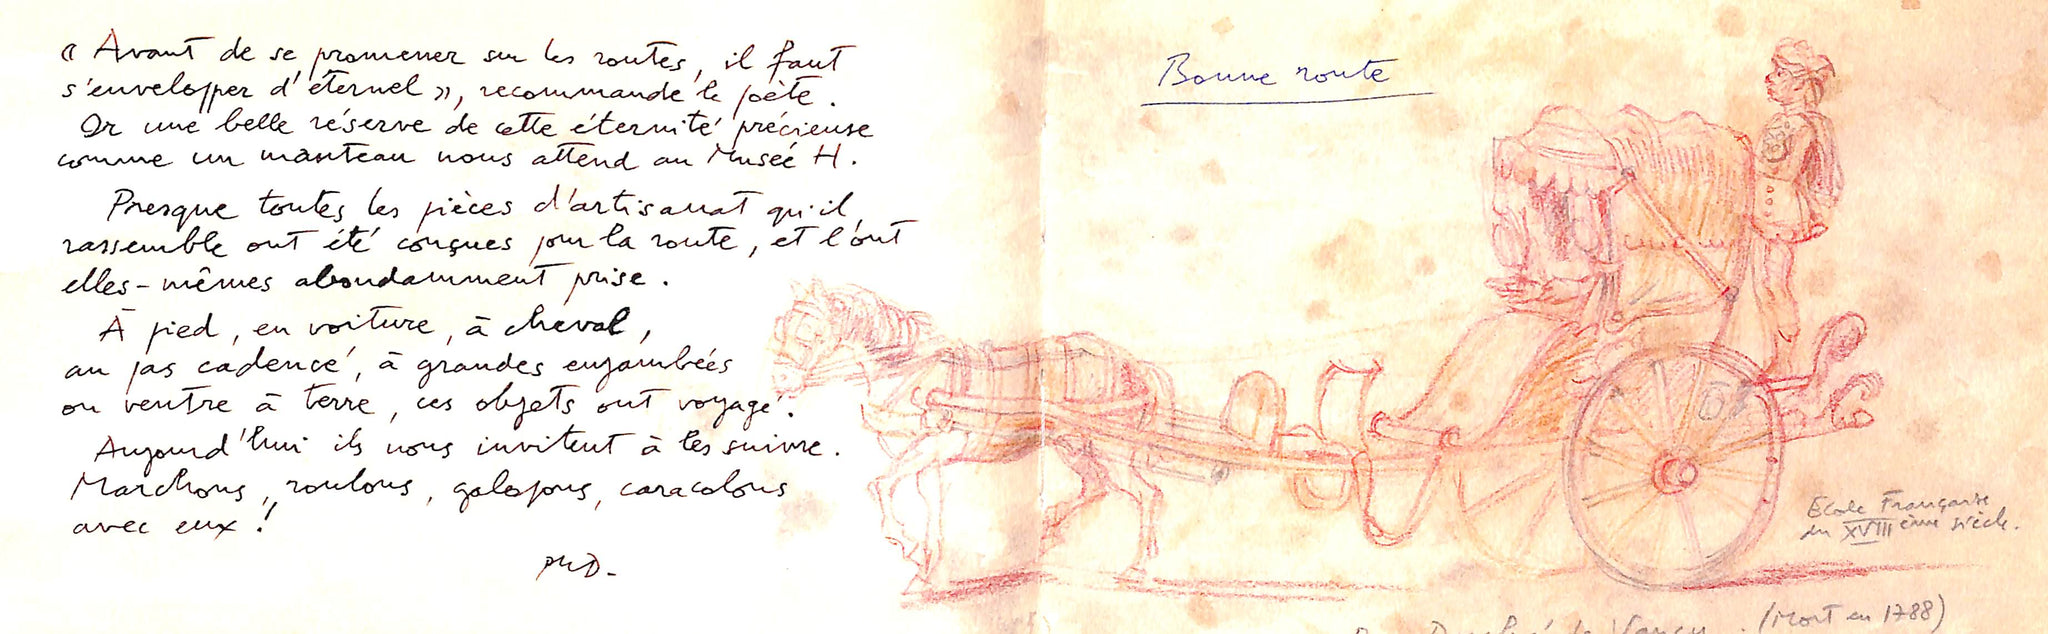 « Avant de se promener sur les routes, il faut
s'envelopper d'éternel », recommande le poète.
Or une belle réserve de cette éternité précieuse
comme un manteau nous attend au Musée H.
Presque toutes les pièces d'artisanat qu'il
rassemble ont été conçues pour la route, et l'ont
elles-mêmes abondamment prise.
À pied, en voiture, à cheval,
au pas cadencé, à grandes enjambées
ou ventre à terre, ces objets ont voyagé.
Aujourd'hui ils nous invitent à les suivre.
Marchons, roulons, galopons, caracolons
avec eux !
Bonne route
Ecole Française
du XVIIIème siècle.
(Mort en 1788)